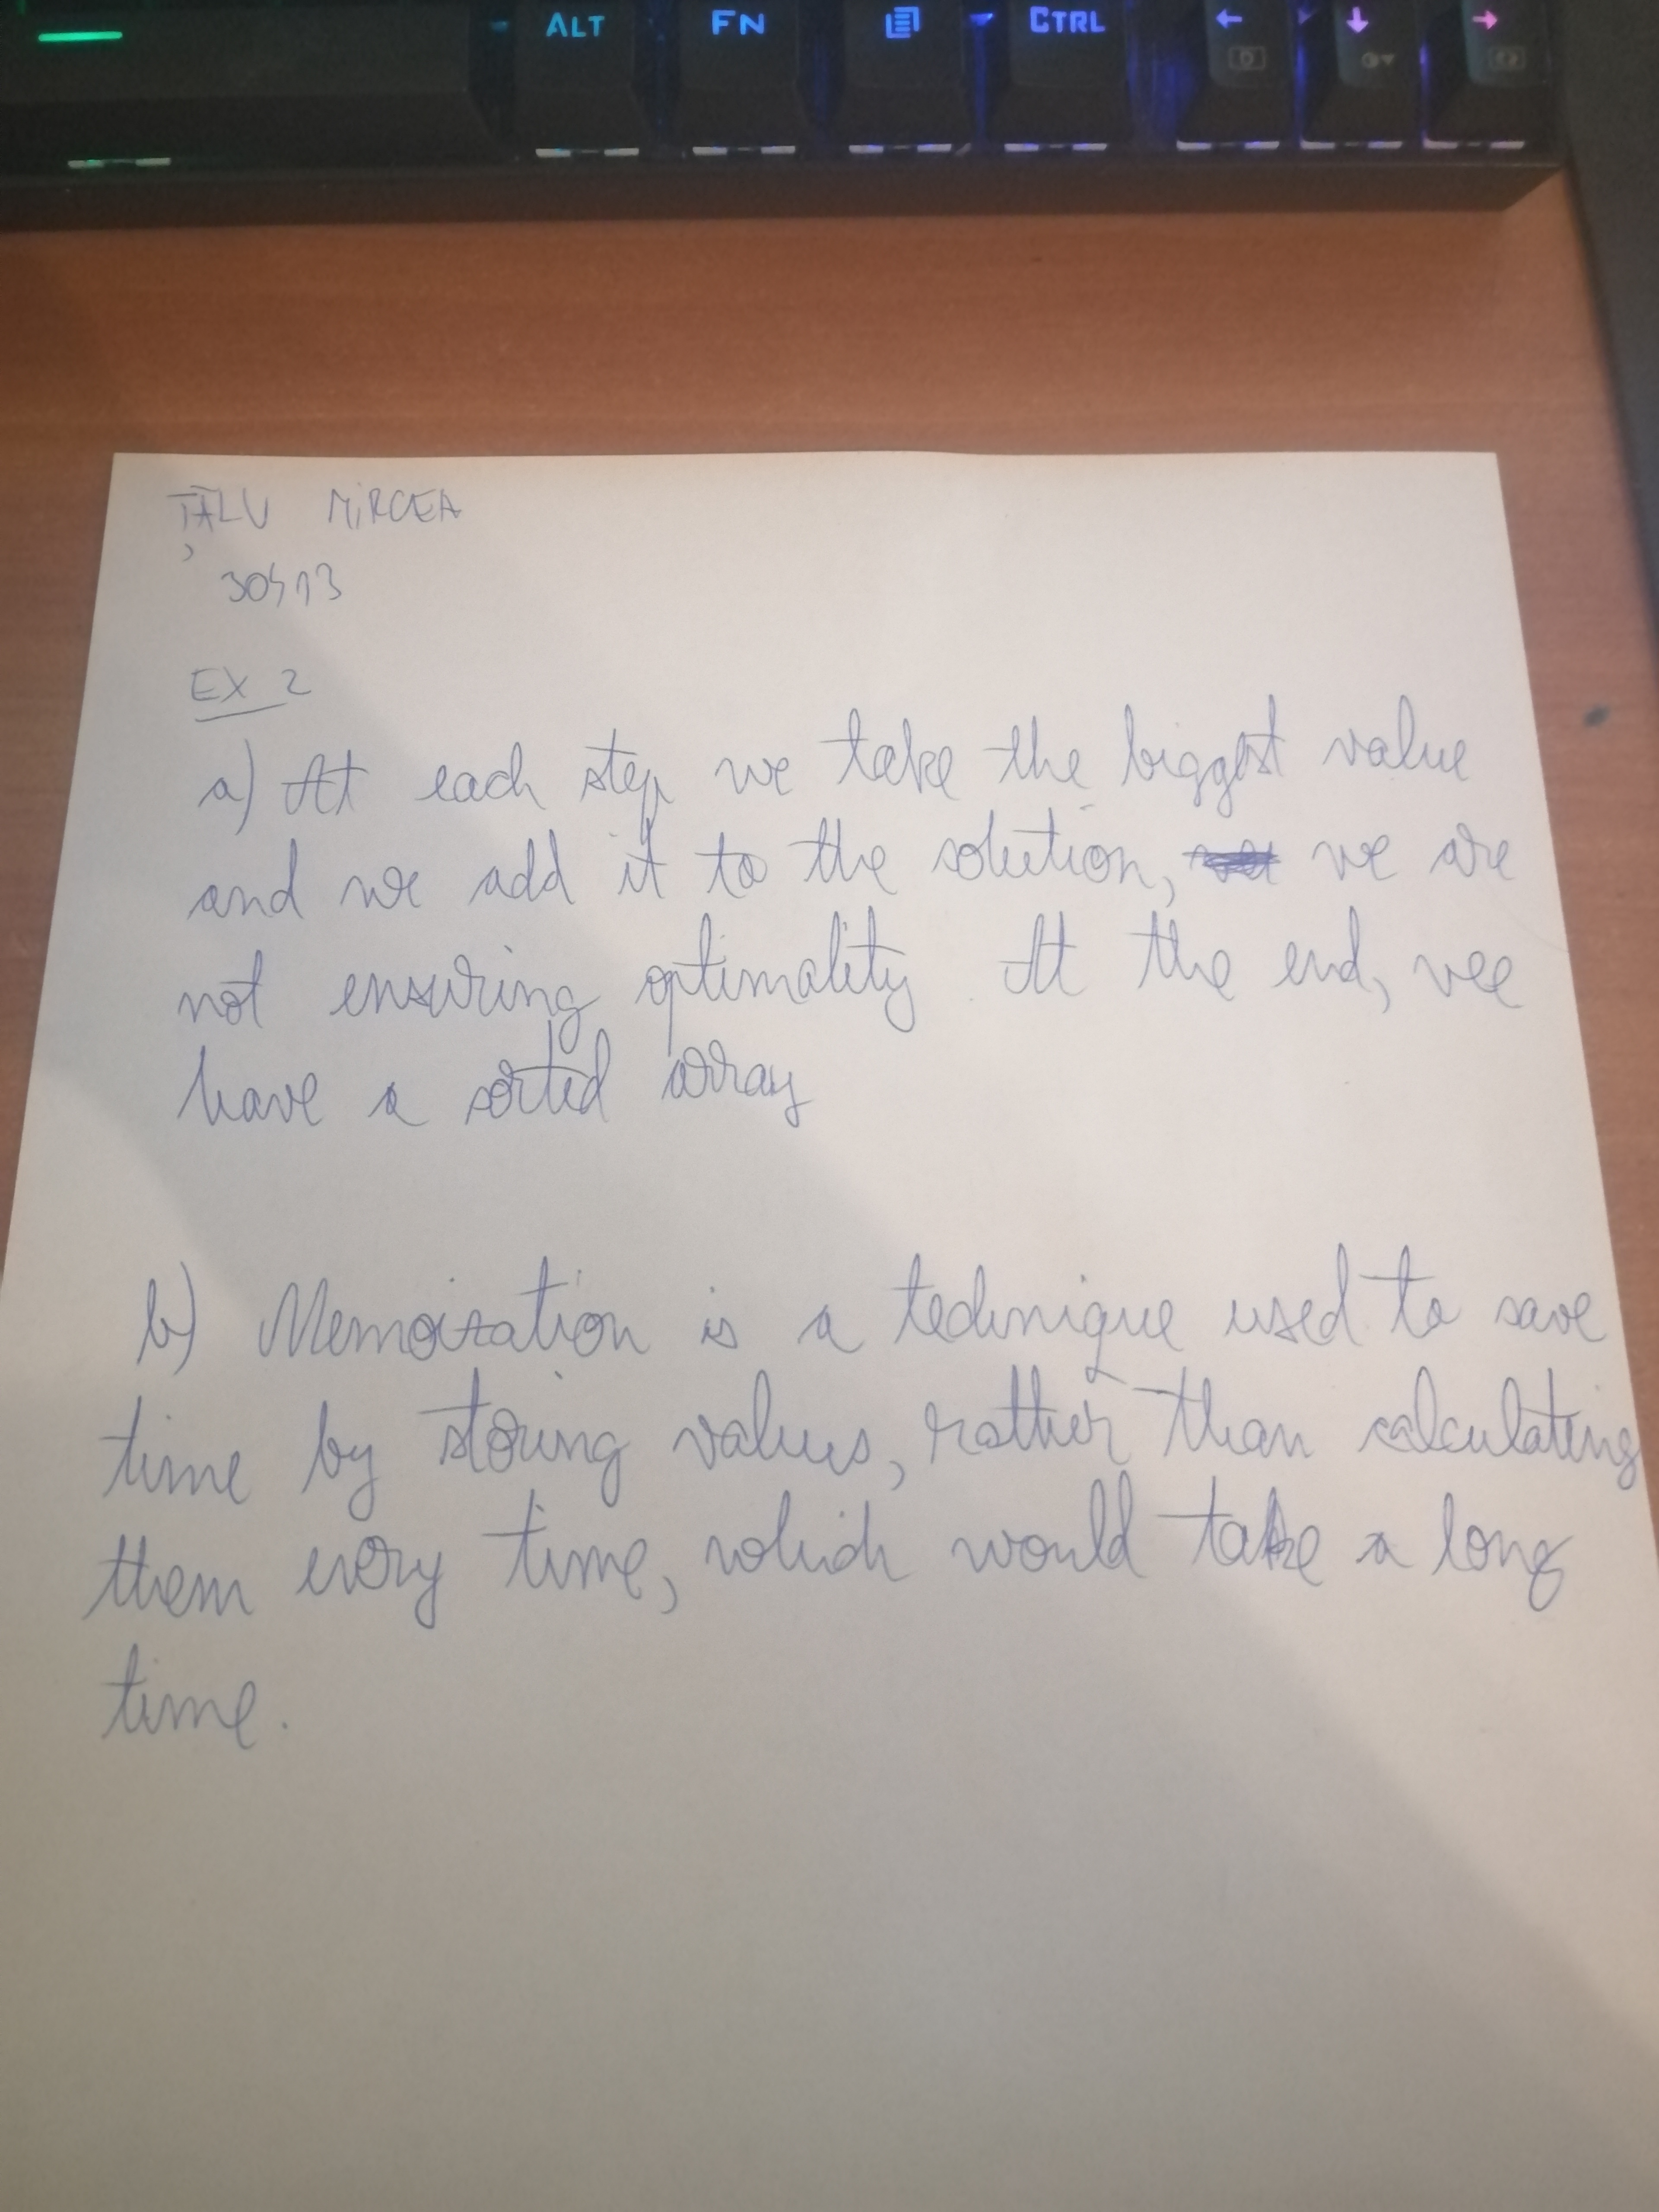 ALT FN CTRL ← ↓ →
ȚĂLU MIRCEA
30413
EX 2
a) At each step we take the biggest value
and we add it to the solution, we are
not ensuring optimality. At the end, wee
have a sorted array
b) Memoization is a technique used to save
time by storing values, rather than calculating
them every time, which would take a long
time.